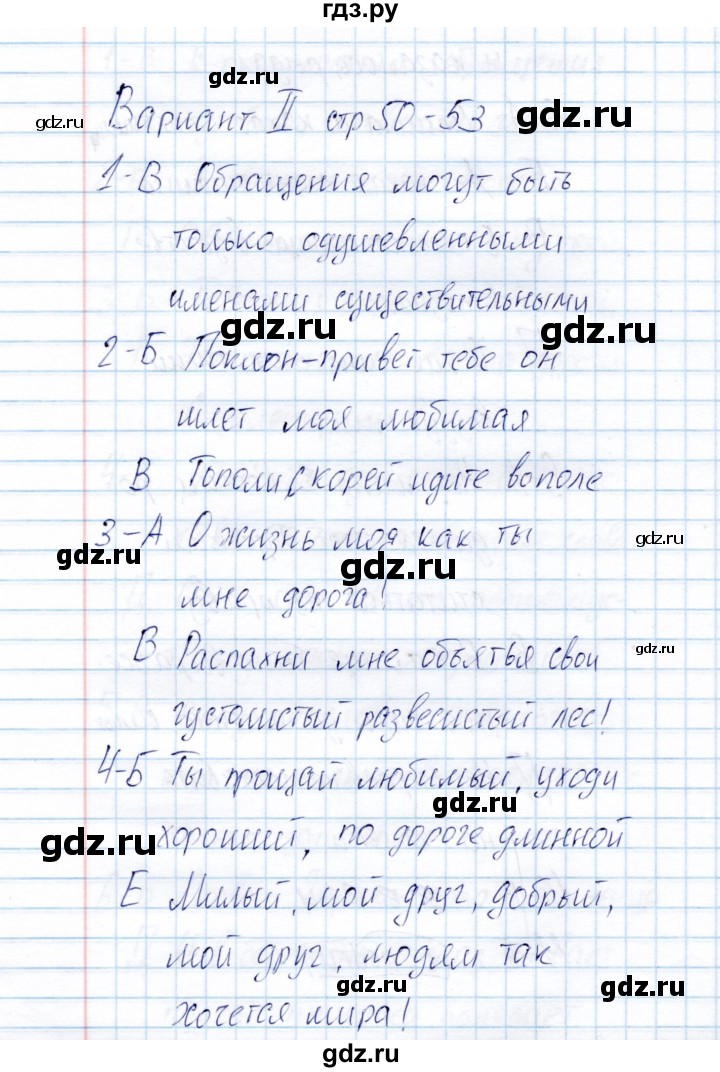 гдз.ру
gdz.ru
gdz.ru Вариант II стр 50-53 gdz.ru
1-В Обращения могут быть
только одушевленными
именами существительными
gdz.ru gdz.ru
2-Б Поклон-привет тебе он
шлет моя любимая
В Тополи скорей идите во поле
3-А О жизнь моя как ты gdz.ru
gdz.ru gdz.ru
мне дорога!
В Распахни мне объятья свои gdz.ru
густолистый развесистый лес!
4-Б Ты прощай любимый, уходи
gdz.ru
хороший, по дороге длинной
gdz.ru
Е Милый, мой друг, добрый,
мой друг, людям так
gdz.ru gdz.ru
хочется мира!
gdz.ru